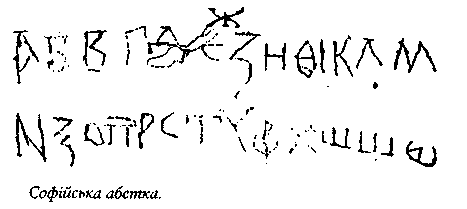 АБВГДЕЖЗНѲІКЛМ
NѮОПРСТѴФХШЩѠ
Софійська абетка.